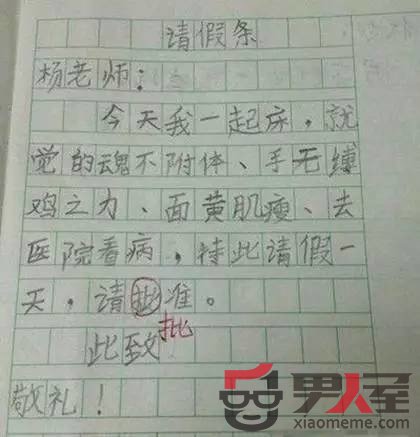 请假条
杨老师：
今天我一起床，就
觉的魂不附体、手无缚
鸡之力、面黄肌瘦、去
医院看病，特此请假一
天，请批准。
批
此致
敬礼！
男人屋
xiaomeme.com